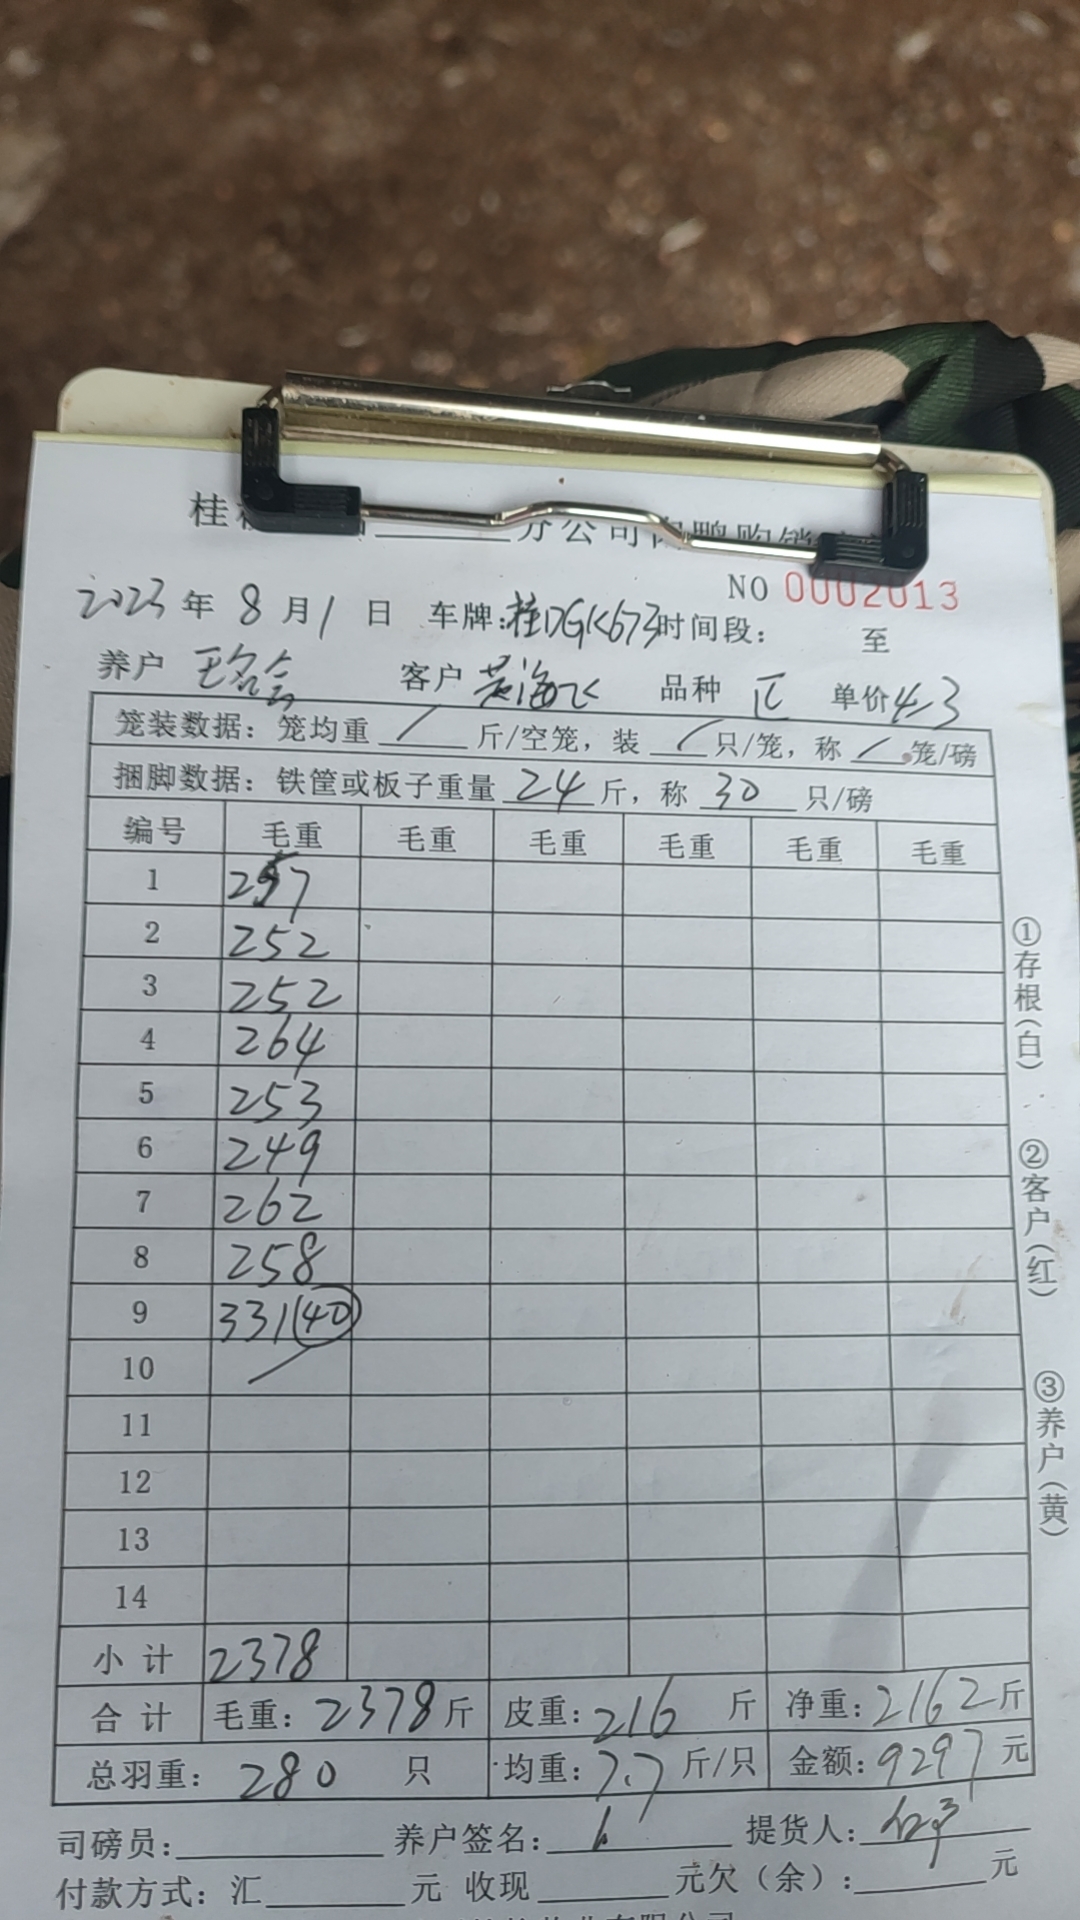 桂 分公司肉鸭购销
NO 0002013
2023 年 8 月 1 日 车牌:桂DGK673 时间段: 至
养户 客户 黄海飞 品种 单价 4.3
笼装数据: 笼均重 / 斤/空笼, 装 / 只/笼, 称 / 笼/磅
捆脚数据: 铁筐或板子重量 24 斤, 称 30 只/磅
编号 毛重 毛重 毛重 毛重 毛重 毛重
1 257
2 252
3 252
4 264
5 253
6 249
7 262
8 258
9 331 (40)
10 /
11
12
13
14
小计 2378
合计 毛重: 2378 斤 皮重: 216 斤 净重: 2162 斤
总羽重: 280 只 均重: 7.7 斤/只 金额: 9297 元
司磅员: 养户签名: 提货人:
付款方式: 汇 元 收现 元欠(余): 元
①存根(白)
②客户(红)
③养户(黄)